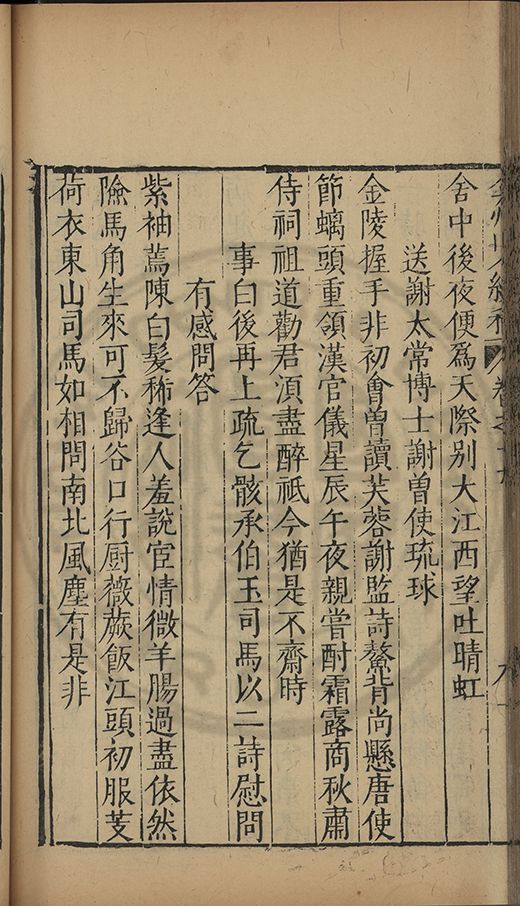 舍中後夜便爲天際別大江西望吐晴虹
送謝太常博士謝曽使琉球
金陵握手非初會曽讀芙蓉謝監詩鰲背尚懸唐使
節螭頭重領漢官儀星辰午夜親嘗酎霜露商秋肅
侍祠祖道勸君須盡醉祇今猶是不齋時
事白後再上疏乞骸承伯玉司馬以二詩慰問
有感問答
紫袖蔫陳白髮稀逢人羞說宦情微羊腸過盡依然
險馬角生來可不歸谷口行厨薇蕨飯江頭初服芰
荷衣東山司馬如相問南北風塵有是非